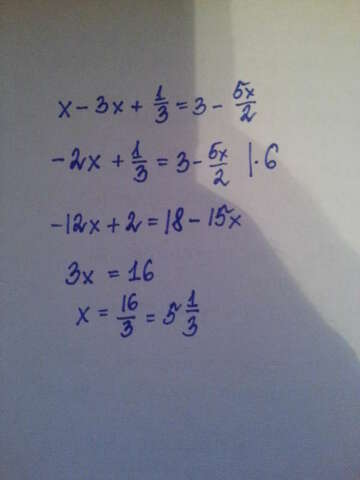 x - 3x + 1/3 = 3 - 5x/2
-2x + 1/3 = 3 - 5x/2 |·6
-12x + 2 = 18 - 15x
3x = 16
x = 16/3 = 5 1/3